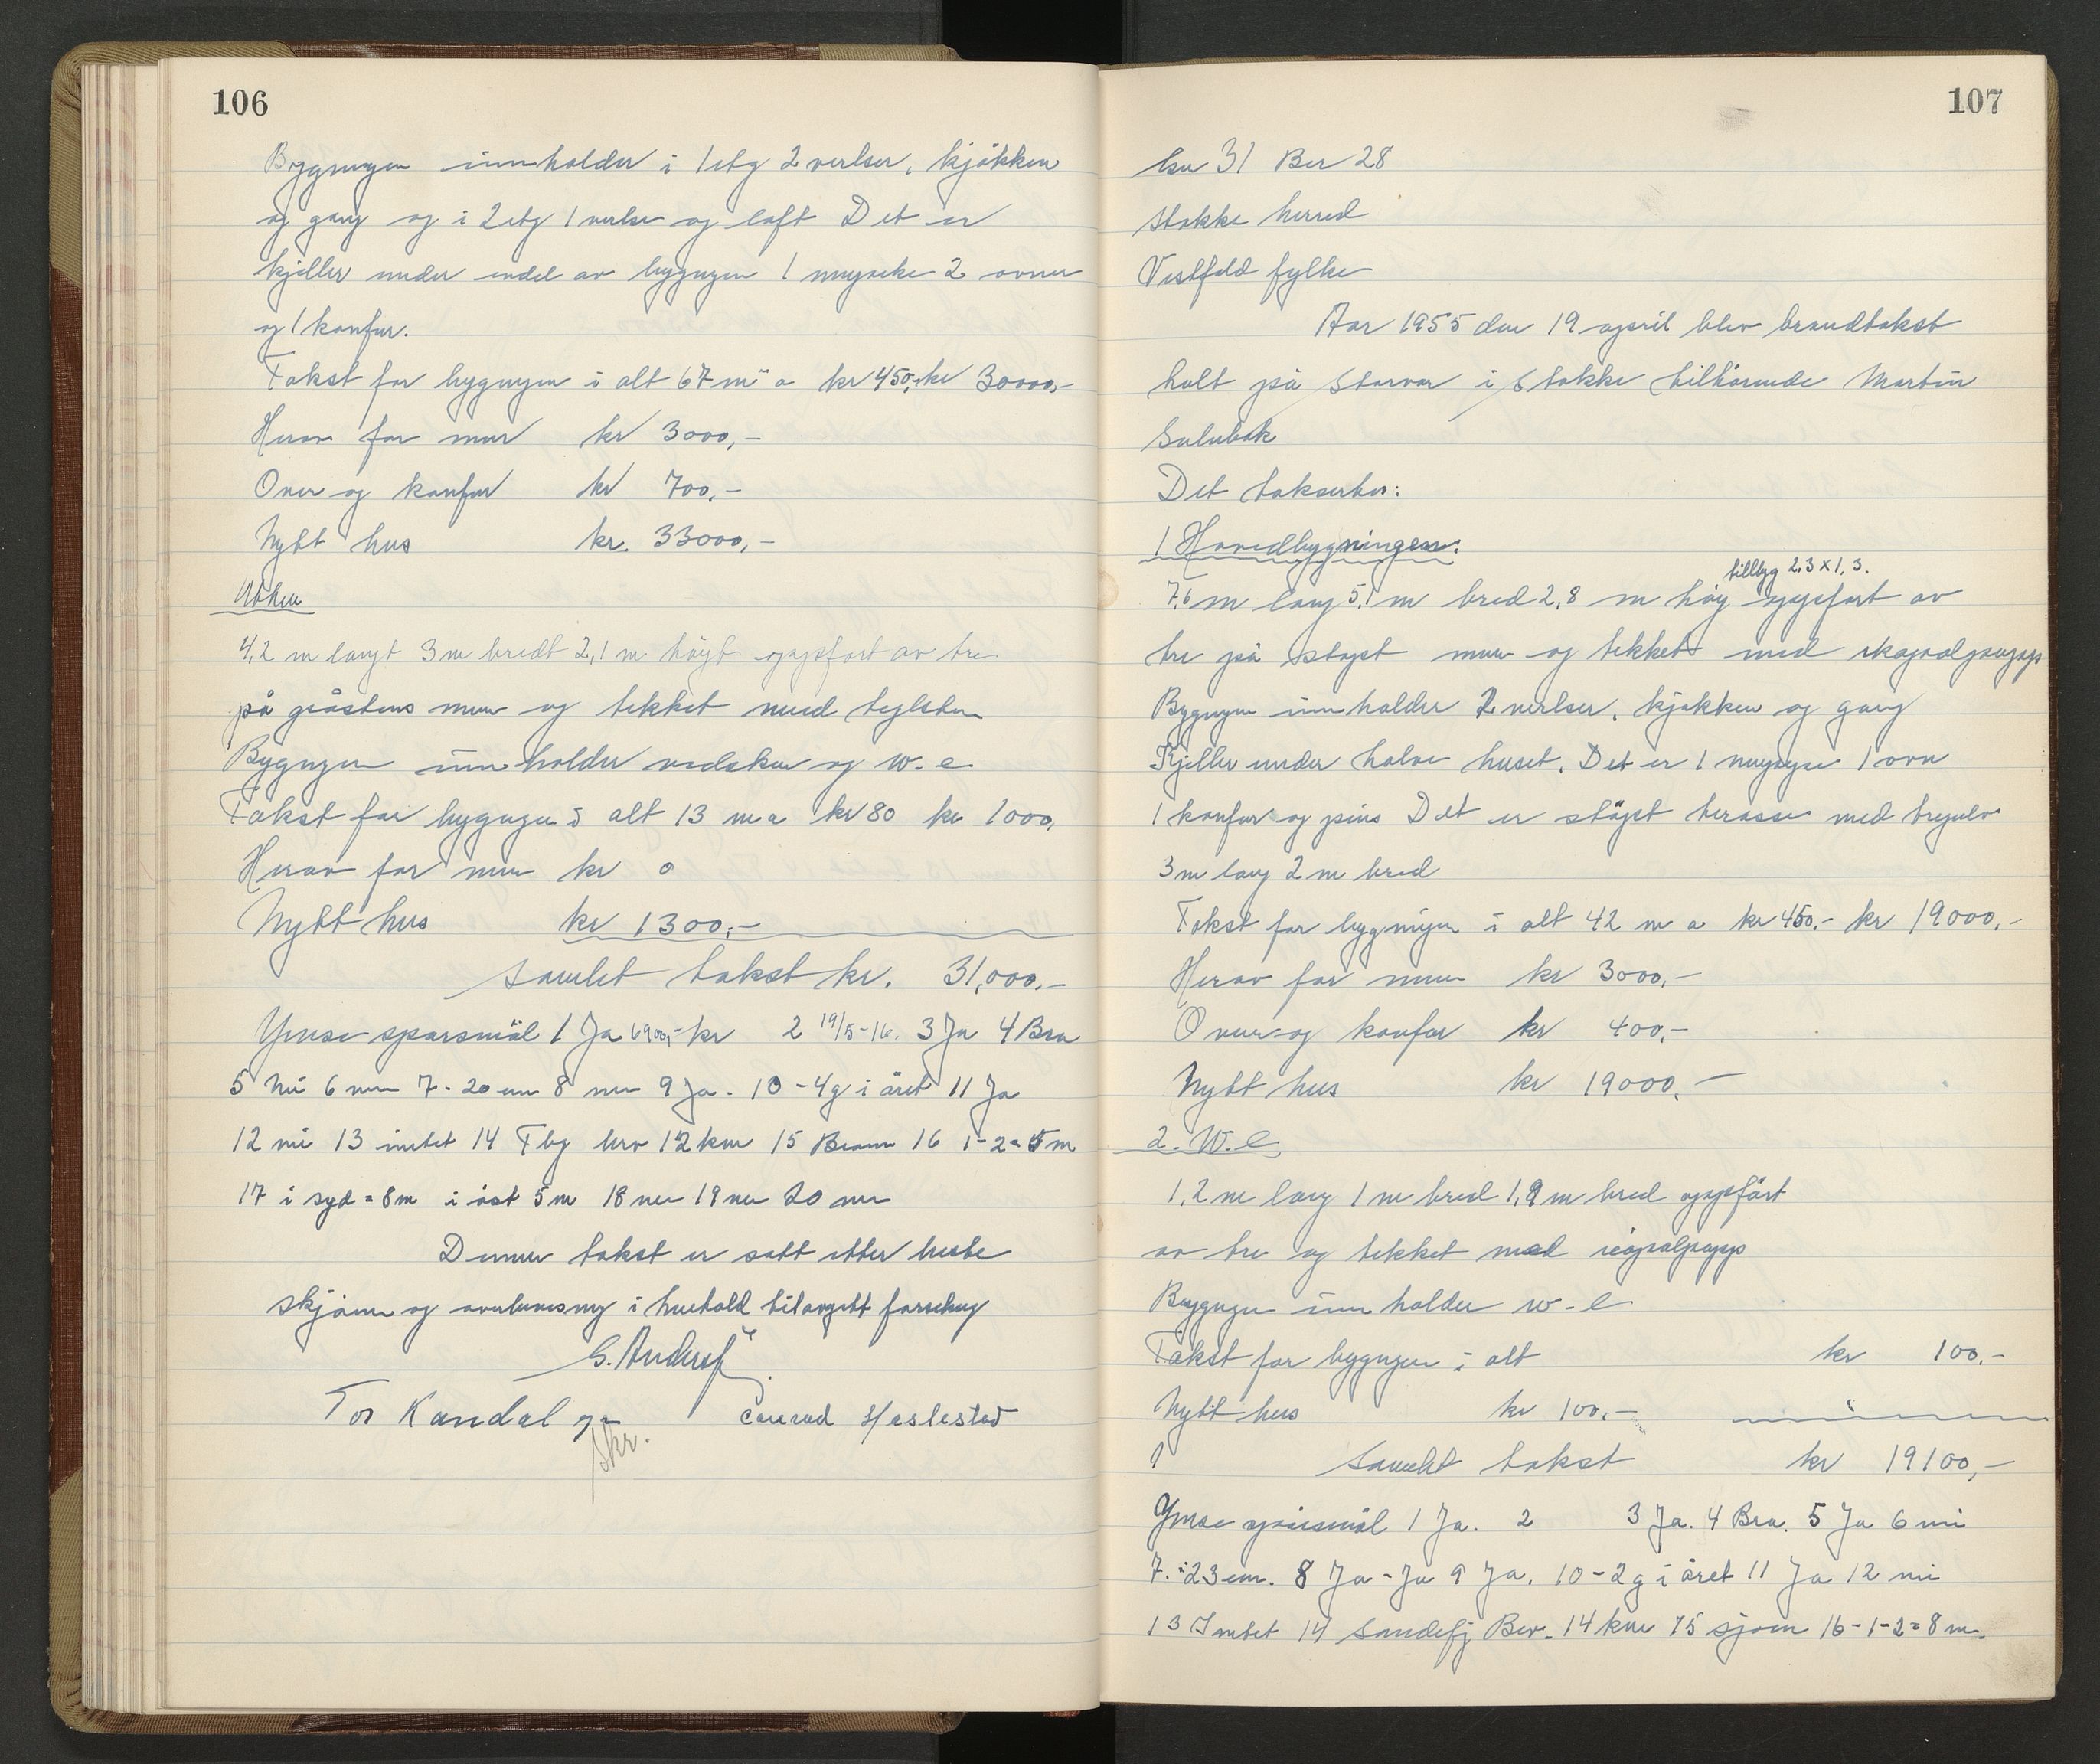 106
Bygningen innholder i 1 etg 2 verlser, kjökken
og gang og i 2 etg 1 verlse og loft Det er
kjeller under endel av bygngen 1 murpipe 2 ovner
og 1 komfur.
Takst for bygngen i alt 67 m² a kr 450,- kr 30000,-
Herav for mur kr 3000,-
Over og komfur kr 700,-
Nytt hus kr. 33000,-
Uthus
4,2 m langt 3 m bredt 2,1 m höyt oppfört av tre
på gråstens mur og tekket med teglsten
Bygngen innholder vedskur og w.c
Takst for bygngen i alt 13 m a kr 80 kr 1000,
Herav for mur kr 0
Nytt hus kr 1300,-
Samlet takst kr. 31,000.-
Ymse sparsmål 1 Ja 6900,- kr 2 19/5-16. 3 Ja 4 Bra
5 Nei 6 nei 7- 20 cm 8 nei 9 Ja. 10 - 4 g i året 11 Ja
12 nei 13 intet 14 Tbg brv 12 km 15 Brönn 16 1-2= 5 m
17 i syd = 8 m i öst 5 m 18 nei 19 nei 20 nei
Denne takst er satt etter beste
skjönn og overbevisning i henhold til avgitt forsikring
G. Anders
Tor Kandal
skr.
Conrad Haslestad
107
Lnr 31 Bnr 28
Stokke herred
Vestfold fylke
Aar 1955 den 19 april blev brandtakst
holt på Storvar i Stokke tilhörende Martin
Solubak
Det takserter:
1 Hovedbygningen:
tillbyg 2,3 x 1,3.
7,6 m lang 5,1 m bred 2,8 m höy oppfört av
tre på stöpt mur og tekket med
Bygngen innholder 2 verlser, kjökken og gang
Kjeller under halve huset. Det er 1 murpipe 1 ovn
1 komfur og peis Det er stöpt terasse med tregulv
3 m lang 2 m bred
Takst for bygningen i alt 42 m a kr 450.- kr 19000.-
Herav for mur kr 3000,-
Ovner og komfur kr 400,-
Nytt hus kr 19000,-
2. W.C.
1,2 m lang 1 m bred 1,9 m bred oppfört
av tre og tekket med
Bygngen innholder w-c
Takst for bygngen i alt kr 100.-
Nytt hus kr 100.-
Samlet takst kr 19100,-
Ymse spörsmål 1 Ja. 2 3 Ja. 4 Bra. 5 Ja 6 nei
7. 23 cm. 8 Ja - Ja 9 Ja. 10 - 2 g i året 11 Ja 12 nei
13 Intet 14 Sandefj Bev. 14 km 15 sjöen 16-1-2= 8 m.